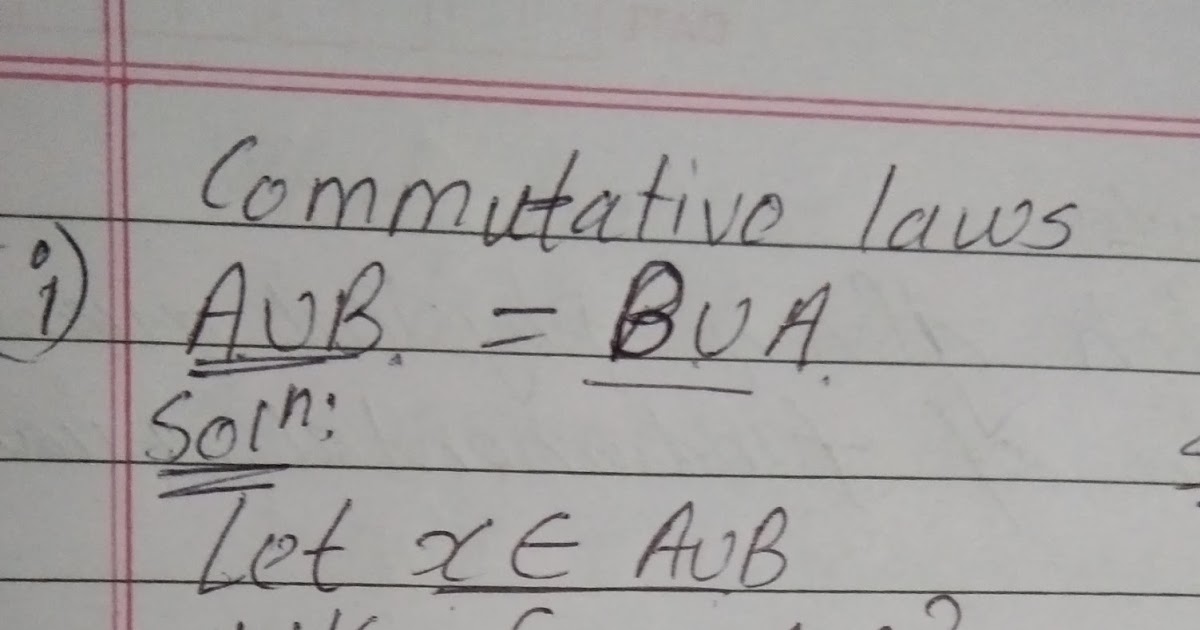 Commutative laws
i) A∪B = B∪A.
Solⁿ:
Let x ∈ A∪B